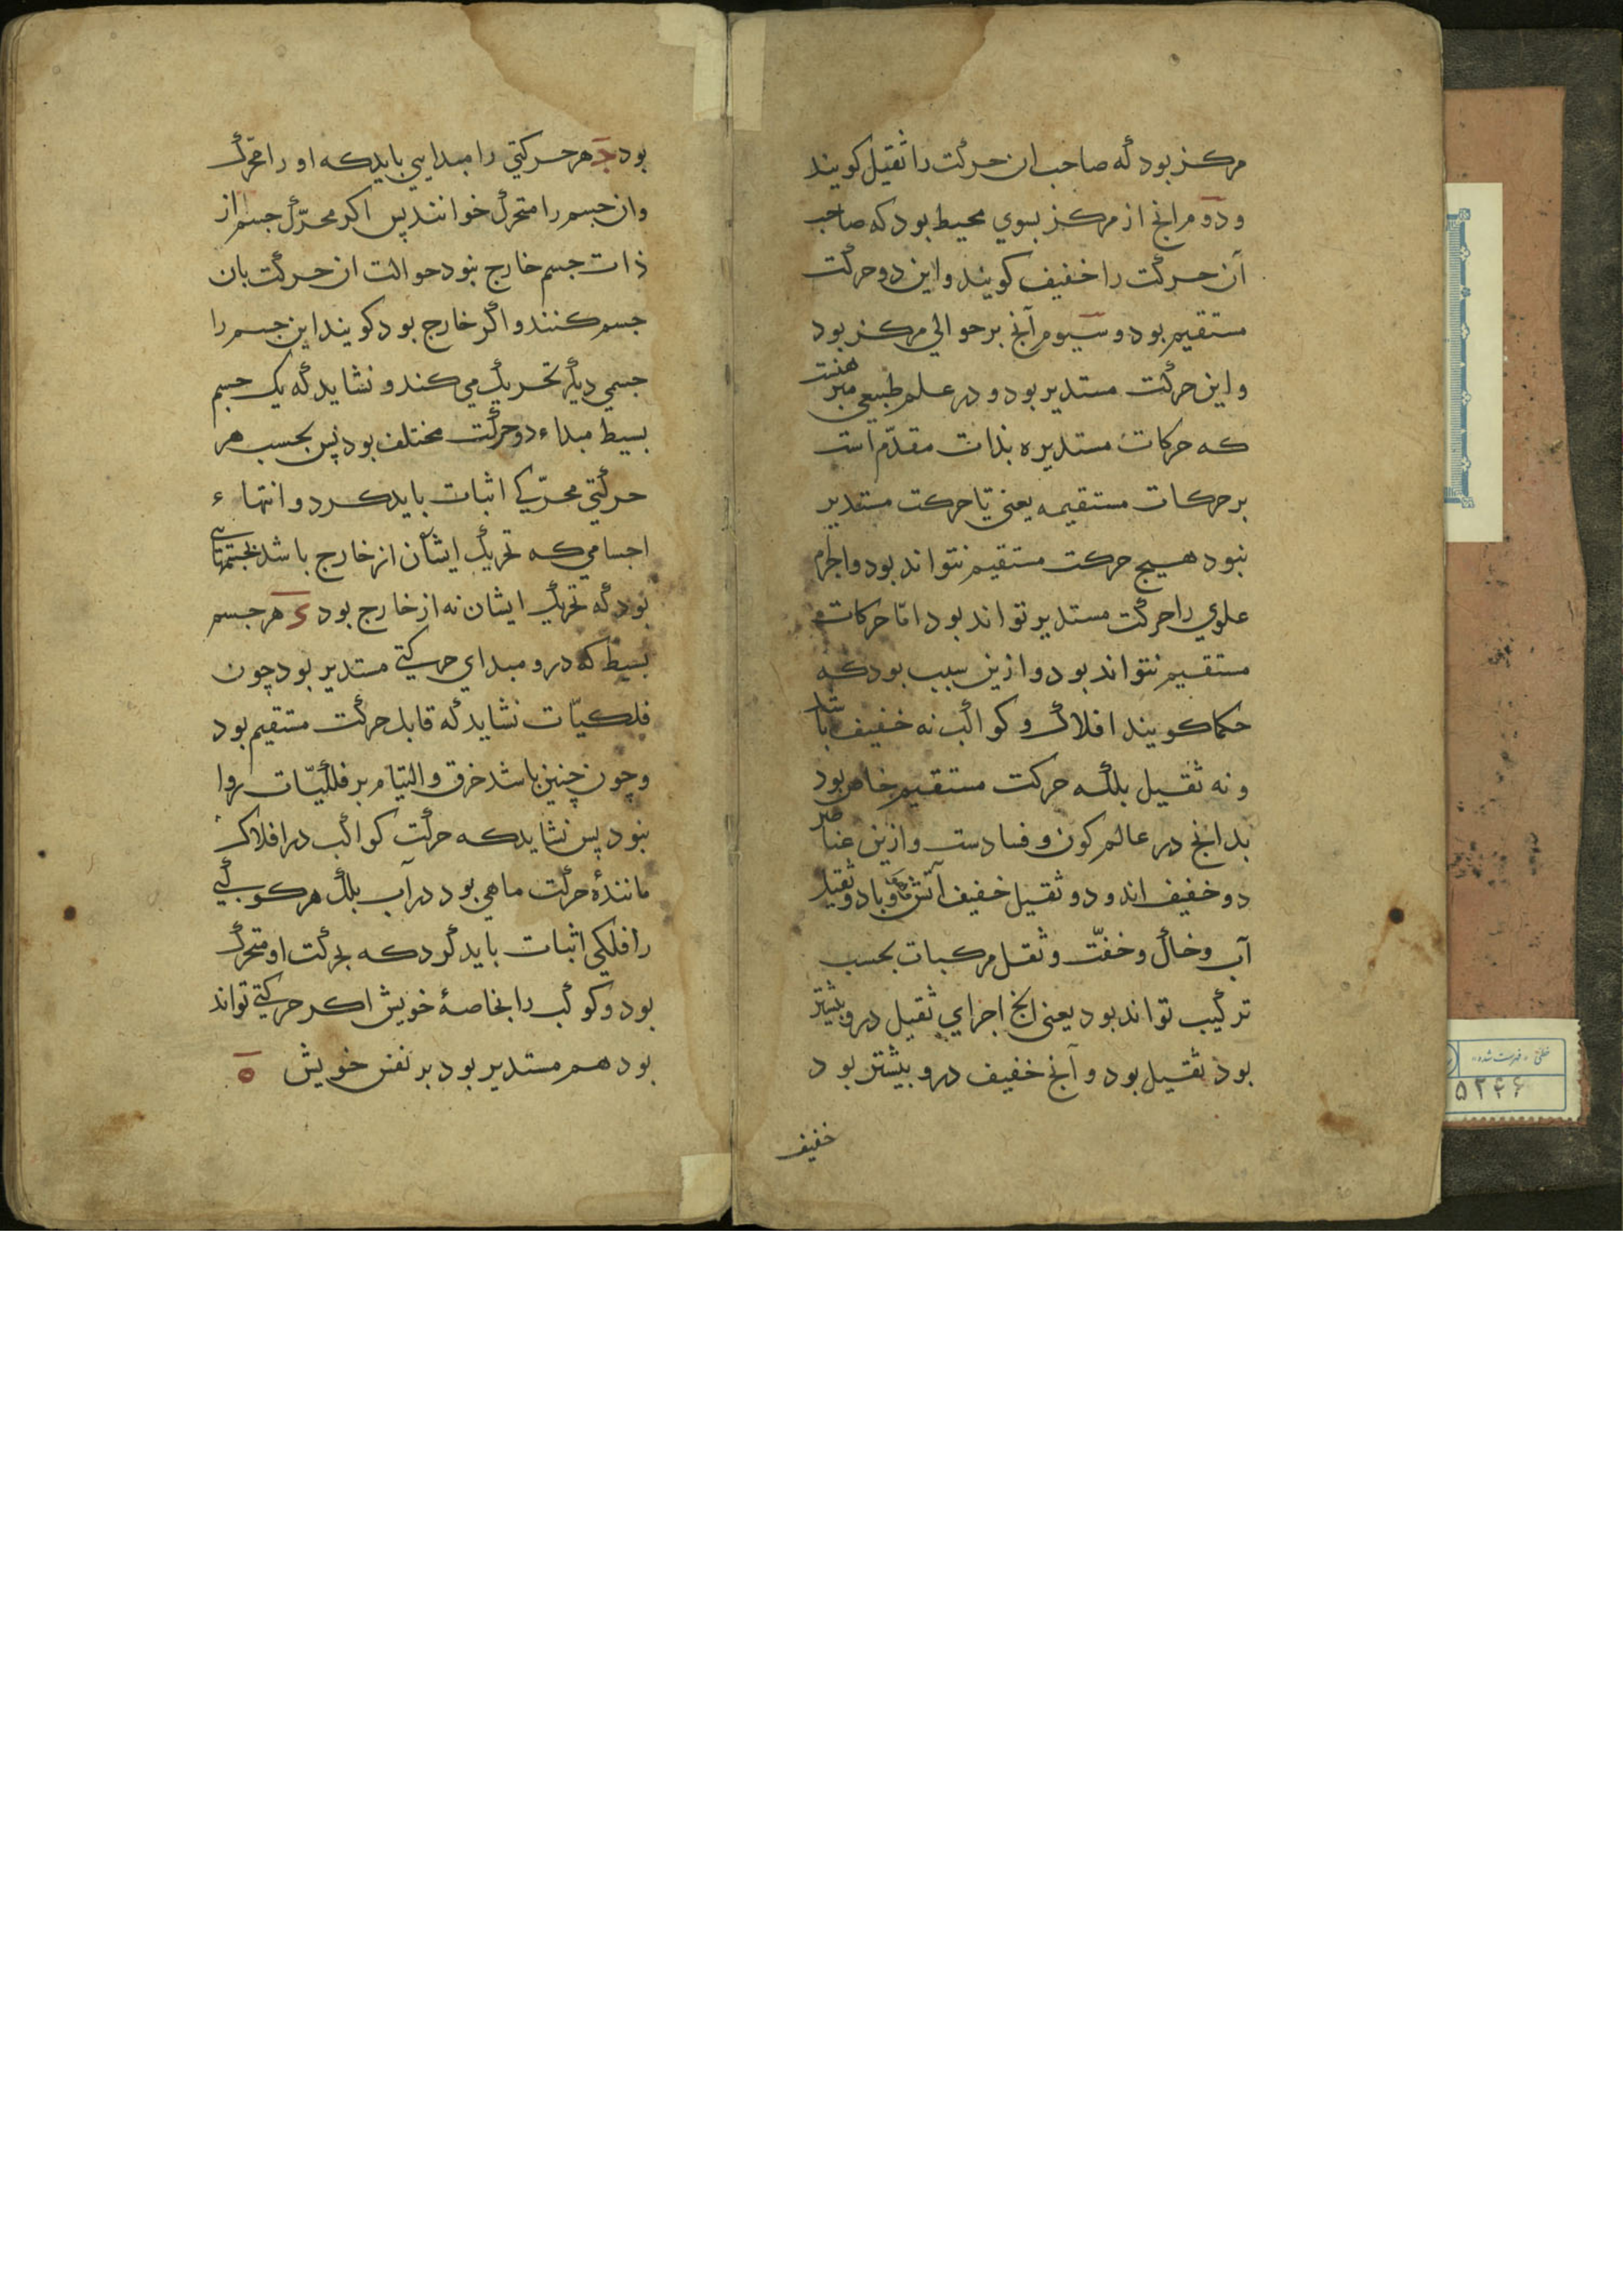 مرکز بود که صاحب ان حرکت را ثقیل کویند
و دوم انچ از مرکز بسوي محیط بود که صاحب
آن حرکت را خفیف کویند و این دو حرکت
مستقیم بود و سیوم آنچ بر حوالي مرکز بود
و این حرکت مستدیر بود و در علم طبیعي مبرهنست
که حرکات مستدیره بذات مقدّم است
بر حرکات مستقیمه یعنی تا حرکت مستدیر
نبود هیچ حرکت مستقیم نتواند بود و اجرام
علوي را حرکت مستدیر تواند بود امّا حرکات
مستقیم نتواند بود و ازین سبب بود که
حکما کویند افلاک و کواکب نه خفیف باشد
و نه ثقیل بلکه حرکت مستقیم خاص بود
بدانچ در عالم کون و فسادست و ازین عناصر
دو خفیف اند و دو ثقیل خفیف آتش و باد و ثقیل
آب و خاک و خفّت و ثقل مرکبات بحسب
ترکیب تواند بود یعنی انچ اجزاي ثقیل درو بیشتر
بود ثقیل بود و آنچ خفیف درو بیشتر بود
خفیف
بود جـ هر حرکتي را مبدایي باید که او را محرّک
و ان جسم را متحرک خوانند پس اکر محرّک جسم از
ذات جسم خارج نبود حوالت ان حرکت بان
جسم کنند و اکر خارج بود کویند این جسم را
جسمي دیکر تحریک مي کند و نشاید که یک جسم
بسیط مبداء دو حرکت مختلف بود پس بحسب هر
حرکتي محرّکي اثبات باید کرد و انتهاء
اجسامي که تحریک ایشان از خارج باشد بجسمهائی
بود که تحریک ایشان نه از خارج بود د هر جسم
بسیط که درو مبداي حرکتي مستدیر بود چون
فلکیّات نشاید که قابل حرکت مستقیم بود
و چون چنین باشد خرق و التیام بر فلکیّات روا
نبود پس نشاید که حرکت کواکب در افلاک
مانندهٔ حرکت ماهي بود در آب بلک هر کوکبي
را فلکي اثبات باید کرد که بحرکت او متحرک
بود و کوکب را بخاصهٔ خویش اکر حرکتي تواند
بود هم مستدیر بود بر نفس خویش ه
خطی «فهرست شده»
۵۲۴۶